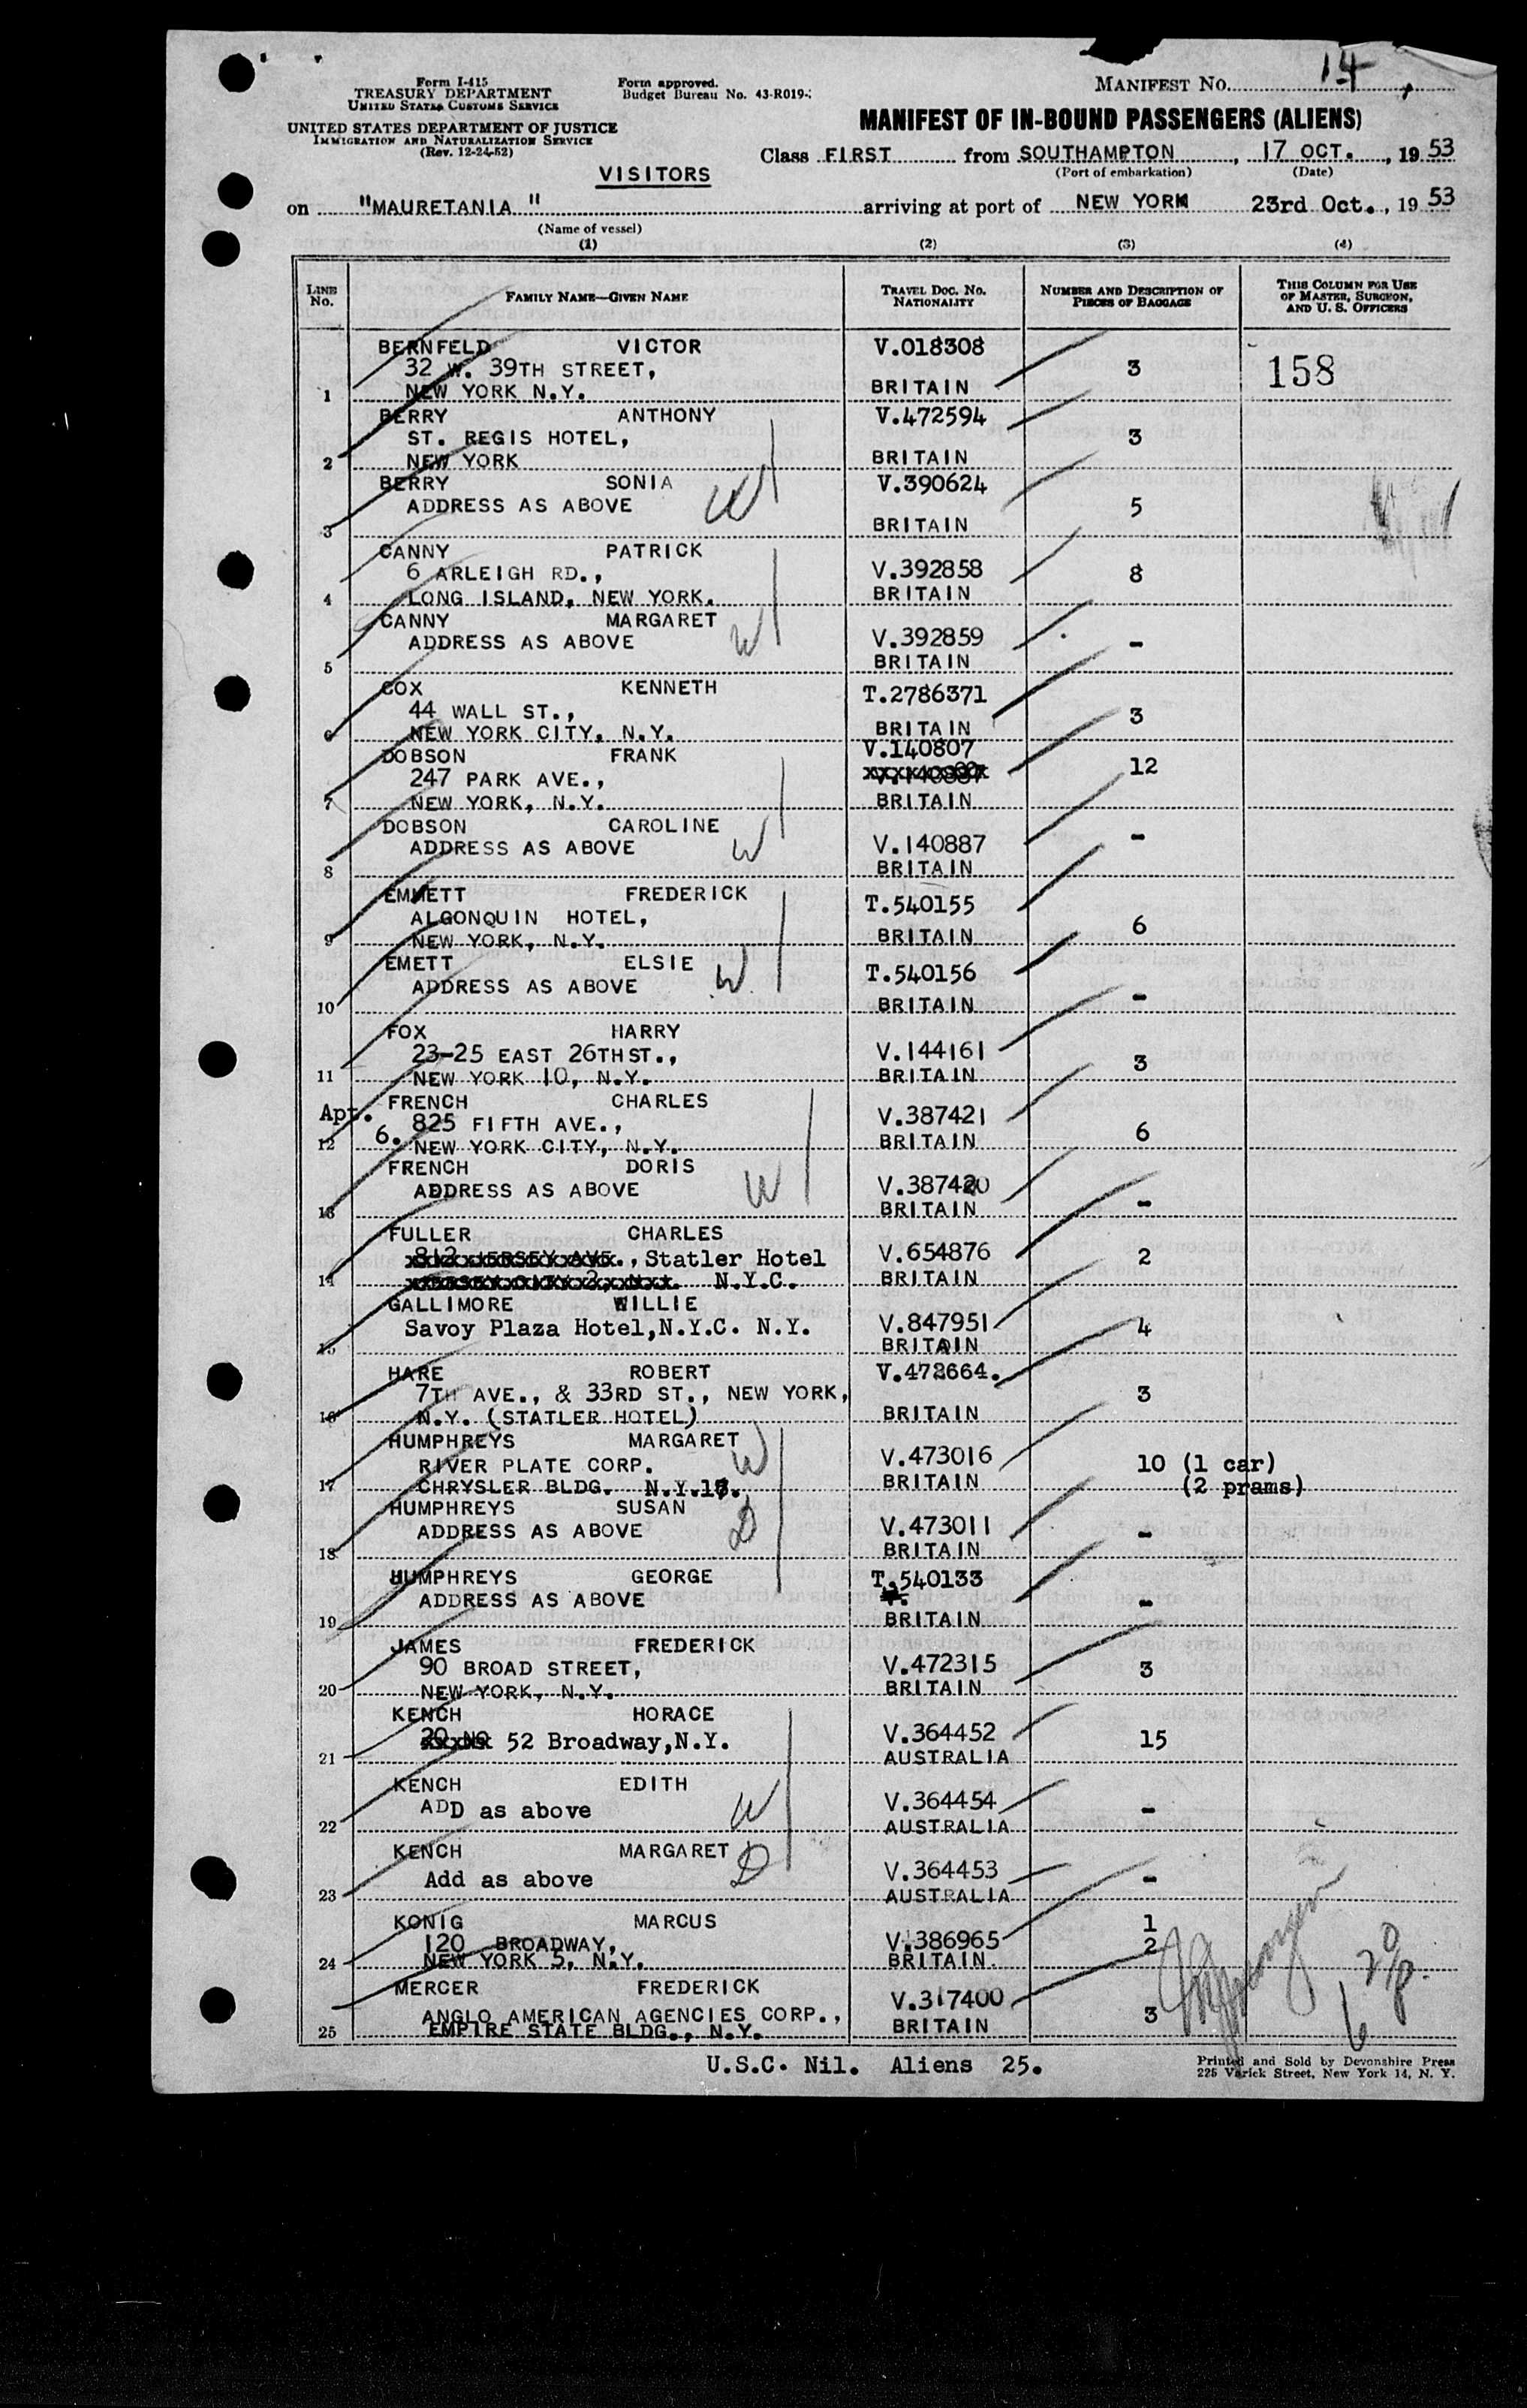 Form I-415
TREASURY DEPARTMENT
UNITED STATES CUSTOMS SERVICE
UNITED STATES DEPARTMENT OF JUSTICE
IMMIGRATION AND NATURALIZATION SERVICE
(Rev. 12-24-52)
Form approved.
Budget Bureau No. 43-R019-
MANIFEST NO. 14
MANIFEST OF IN-BOUND PASSENGERS (ALIENS)
Class FIRST from SOUTHAMPTON, 17 OCT., 1953
(Port of embarkation) (Date)
VISITORS
on "MAURETANIA" arriving at port of NEW YORK 23rd Oct., 1953
(Name of vessel)
(1) (2) (3) (4)
LINE NO. FAMILY NAME—GIVEN NAME TRAVEL DOC. NO. NATIONALITY NUMBER AND DESCRIPTION OF PIECES OF BAGGAGE THIS COLUMN FOR USE OF MASTER, SURGEON, AND U. S. OFFICERS
BERNFELD VICTOR V.018308
32 W. 39TH STREET, 3 158
1 NEW YORK N.Y. BRITAIN
BERRY ANTHONY V.472594
ST. REGIS HOTEL, 3
2 NEW YORK BRITAIN
BERRY SONIA V.390624
ADDRESS AS ABOVE W 5
3 BRITAIN
CANNY PATRICK
6 ARLEIGH RD., V.392858 8
4 LONG ISLAND, NEW YORK. BRITAIN
CANNY MARGARET
ADDRESS AS ABOVE W V.392859 -
5 BRITAIN
COX KENNETH T.2786371
44 WALL ST., 3
6 NEW YORK CITY, N.Y. BRITAIN
DOBSON FRANK V.140807
247 PARK AVE., 12
7 NEW YORK, N.Y. BRITAIN
DOBSON CAROLINE
ADDRESS AS ABOVE W V.140887 -
8 BRITAIN
EMMETT FREDERICK T.540155
ALGONQUIN HOTEL, 6
9 NEW YORK, N.Y. BRITAIN
EMETT ELSIE W T.540156
ADDRESS AS ABOVE -
10 BRITAIN
FOX HARRY
23-25 EAST 26TH ST., V.144161 3
11 NEW YORK 10, N.Y. BRITAIN
FRENCH CHARLES
Apt. 825 FIFTH AVE., V.387421 6
12 6. NEW YORK CITY, N.Y. BRITAIN
FRENCH DORIS
ADDRESS AS ABOVE W V.387420 -
13 BRITAIN
FULLER CHARLES
812 JERSEY AVE., Statler Hotel V.654876 2
14 N.Y.C. BRITAIN
GALLIMORE WILLIE
Savoy Plaza Hotel,N.Y.C. N.Y. V.847951 4
15 BRITAIN
HARE ROBERT V.472664.
7TH AVE., & 33RD ST., NEW YORK, 3
16 N.Y. (STATLER HOTEL) BRITAIN
HUMPHREYS MARGARET W
RIVER PLATE CORP. V.473016 10 (1 car)
17 CHRYSLER BLDG. N.Y.17. BRITAIN (2 prams)
HUMPHREYS SUSAN
ADDRESS AS ABOVE D V.473011 -
18 BRITAIN
HUMPHREYS GEORGE T.540133
ADDRESS AS ABOVE -
19 BRITAIN
JAMES FREDERICK
90 BROAD STREET, V.472315 3
20 NEW YORK, N.Y. BRITAIN
KENCH HORACE
52 Broadway,N.Y. V.364452 15
21 AUSTRALIA
KENCH EDITH
ADD as above W V.364454 -
22 AUSTRALIA
KENCH MARGARET
Add as above D V.364453 -
23 AUSTRALIA
KONIG MARCUS 1
120 BROADWAY, V.386965 2
24 NEW YORK 5, N.Y. BRITAIN.
MERCER FREDERICK
ANGLO AMERICAN AGENCIES CORP., V.317400 3
25 EMPIRE STATE BLDG., N.Y. BRITAIN
U.S.C. Nil. Aliens 25.
Printed and Sold by Devonshire Press
225 Varick Street, New York 14, N. Y.